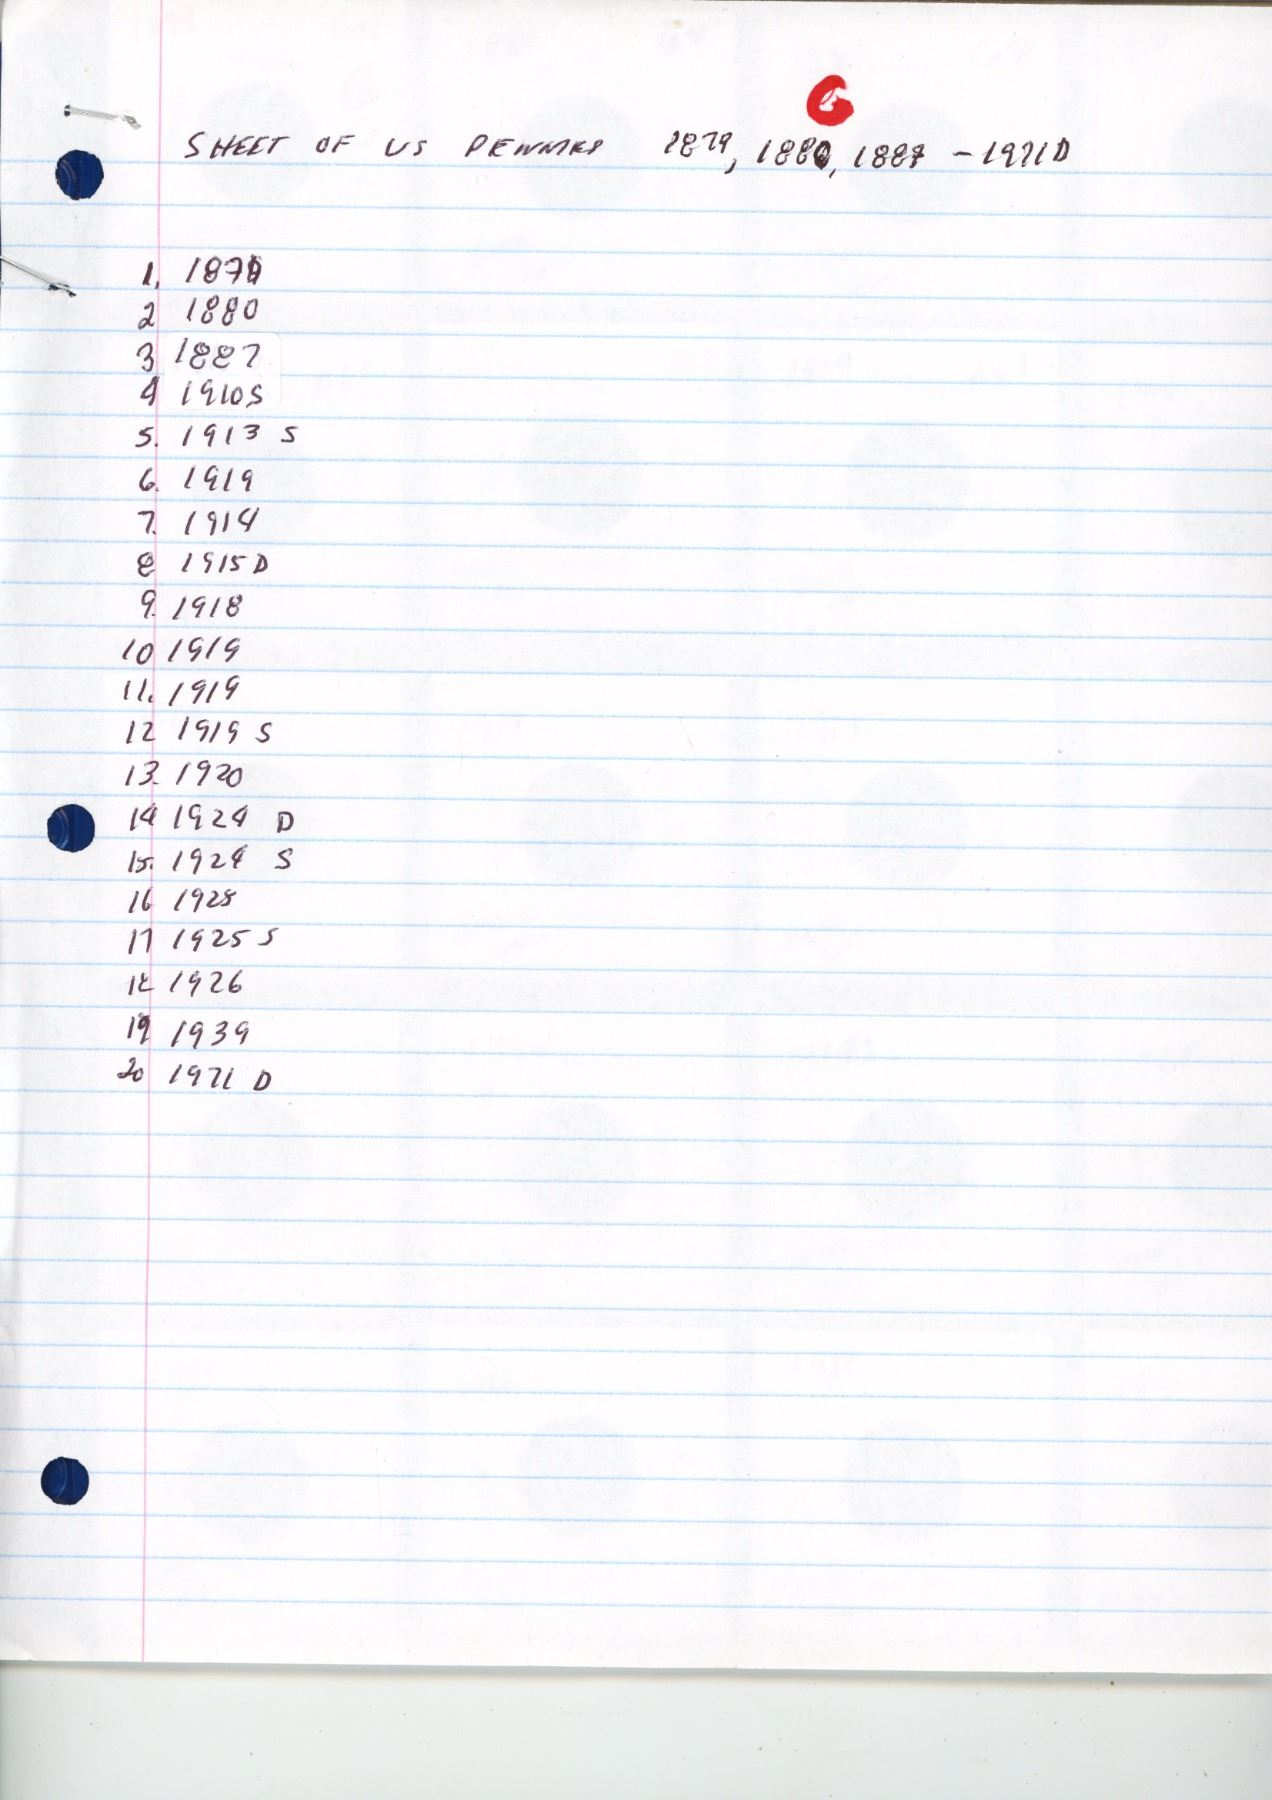 G
SHEET OF US PENNIES 1879, 1880, 1887 - 1971D
1. 1879
2 1880
3 1887
4 1910S
5. 1913 S
6. 1919
7. 1914
8 1915 D
9. 1918
10 1919
11. 1919
12 1919 S
13. 1920
14 1924 D
15. 1924 S
16 1925
17 1925 S
18 1926
19 1939
20 1971 D